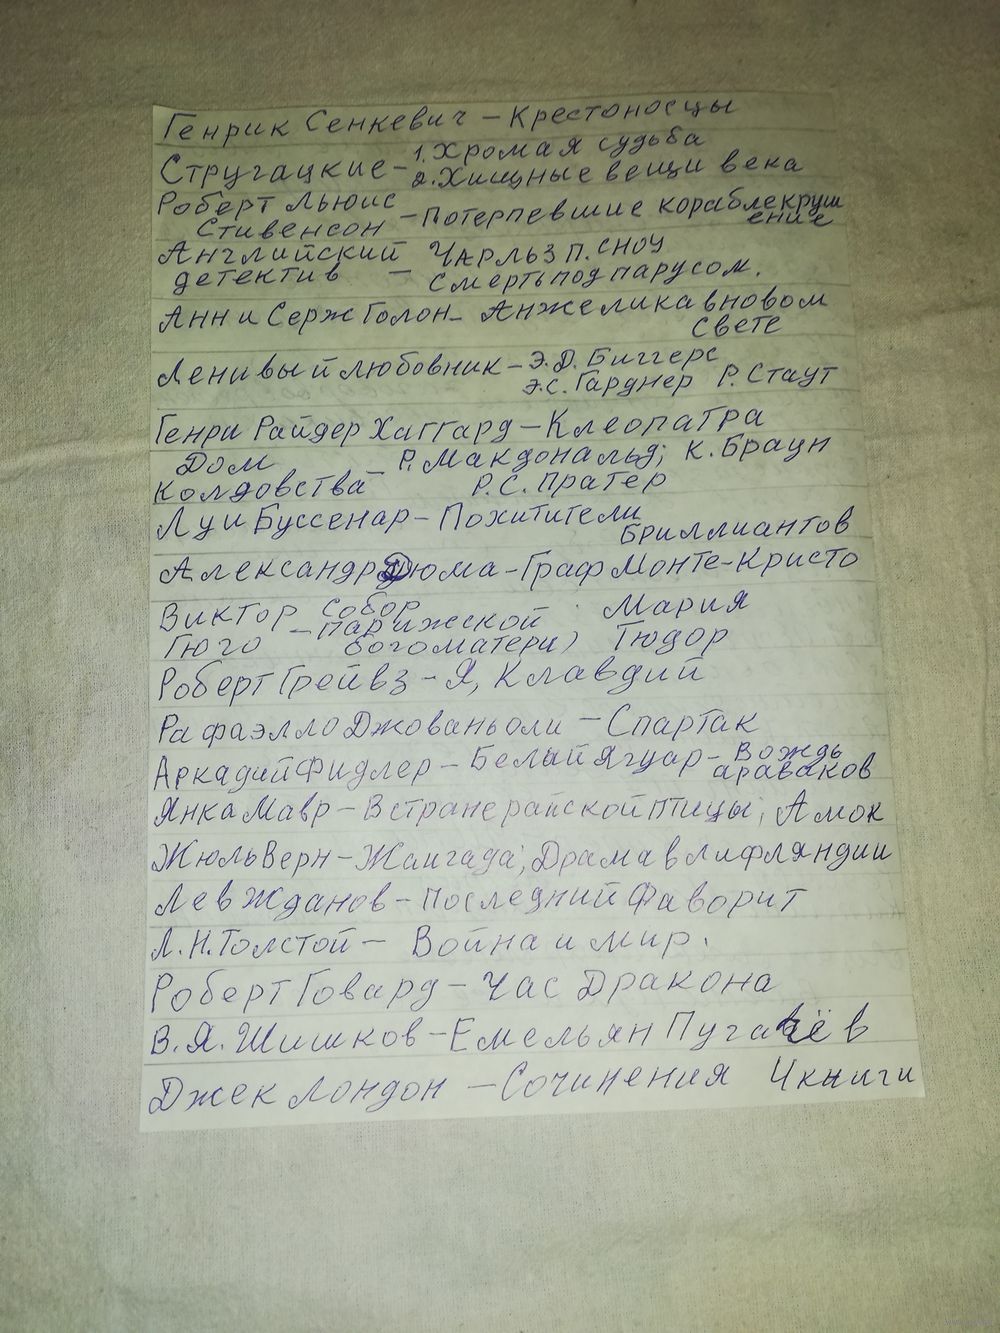 Генрик Сенкевич – Крестоносцы
Стругацкие – 1. Хромая судьба
2. Хищные вещи века
Роберт Льюис
Стивенсон – Потерпевшие кораблекруш
ение
Английский Чарльз П. Сноу
детектив – Смерть под парусом.
Анн и Серж Голон – Анжелика в новом
свете
Ленивый любовник – Э.Д. Биггерс
Э.С. Гарднер Р. Стаут
Генри Райдер Хаггард – Клеопатра
Дом – Р. Макдональд; К. Браун
Колдовства Р.С. Пратер
Луи Буссенар – Похитители
Бриллиантов
Александр Дюма – Граф Монте-Кристо
Виктор Собор Мария
Гюго – парижской богоматери, Тюдор
Роберт Грейвз – Я, Клавдий
Рафаэлло Джованьоли – Спартак
Аркадий Фидлер – Белый Ягуар – Вождь
араваков
Янка Мавр – В стране райской птицы; Амок
Жюль Верн – Жангада; Драма в Лифляндии
Лев Жданов – Последний Фаворит
Л.Н. Толстой – Война и мир.
Роберт Говард – Час Дракона
В.Я. Шишков – Емельян Пугачёв
Джек Лондон – Сочинения 4 книги